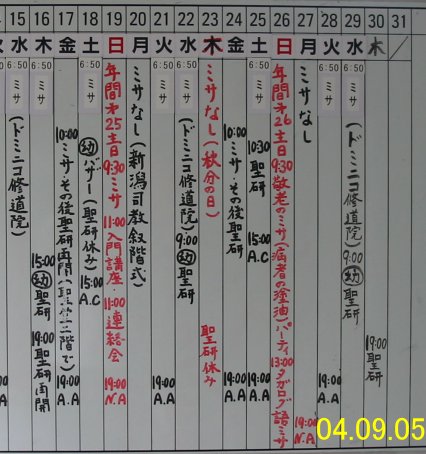 15 16 17 18 19 20 21 22 23 24 25 26 27 28 29 30 31
水 木 金 土 日 月 火 水 木 金 土 日 月 火 水 木 /
6:50 ミサ (ドミニコ修道院)
6:50 ミサ 15:00 幼 聖研 19:00 聖研再開
10:00 ミサ・その後聖研再開 (聖堂二階で) 19:00 A.A
6:50 ミサ 幼 バザー(聖研休み) 15:00 A.C
年間オ25主日 9:30 ミサ 11:00 入門講座・11:00 連総会 19:00 N.A
ミサなし (新潟司教叙階式)
6:50 ミサ 19:00 A.A
6:50 ミサ (ドミニコ修道院) 9:00 幼 聖研
ミサなし (秋分の日) 聖研休み
10:00 ミサ・その後聖研 19:00 A.A
6:50 ミサ 10:30 聖研 15:00 A.C 19:00 A.A
年間オ26主日 9:30 敬老のミサ(病者の塗油)パーティ 13:00 タガログ語ミサ 19:00 N.A
ミサなし
6:50 ミサ 19:00 A.A
6:50 ミサ (ドミニコ修道院) 9:00 幼 聖研
6:50 ミサ 19:00 聖研
04.09.05